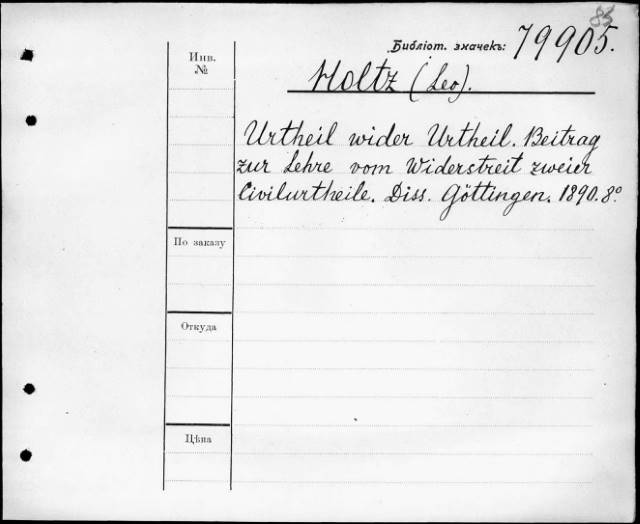 83
Библіот. значекъ: 79905.
Инв.
№
Holtz (Leo).
Urtheil wider Urtheil. Beitrag
zur Lehre vom Widerstreit zweier
Civilurtheile. Diss. Göttingen. 1890. 8º
По заказу
Откуда
Цѣна